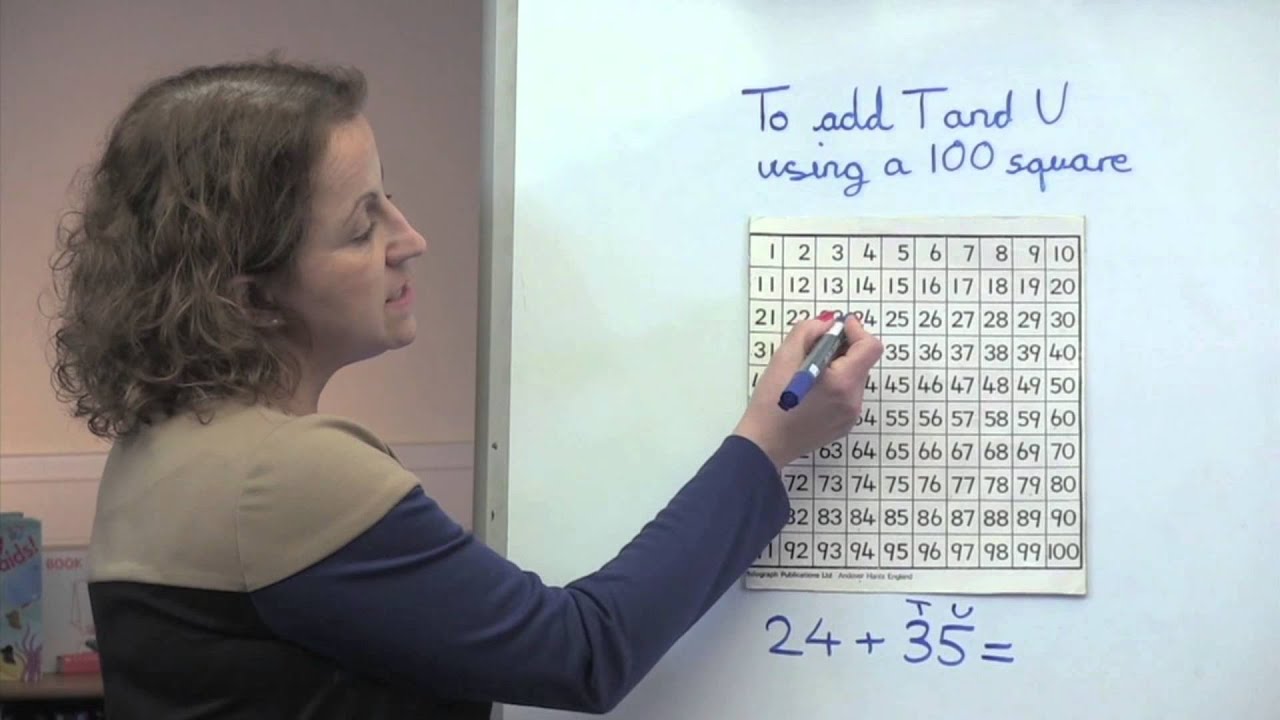 To add T and U
using a 100 square
1 2 3 4 5 6 7 8 9 10
11 12 13 14 15 16 17 18 19 20
21 22 24 25 26 27 28 29 30
31 35 36 37 38 39 40
45 46 47 48 49 50
55 56 57 58 59 60
63 64 65 66 67 68 69 70
72 73 74 75 76 77 78 79 80
82 83 84 85 86 87 88 89 90
92 93 94 95 96 97 98 99 100
Publications Ltd Andover Hants England
T U
24 + 35 =
BOOK